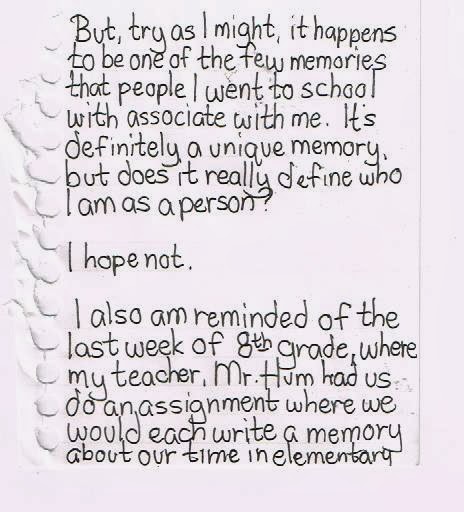 But, try as I might, it happens
to be one of the few memories
that people I went to school
with associate with me. It's
definitely a unique memory,
but does it really define who
I am as a person?
I hope not.
I also am reminded of the
last week of 8th grade, where
my teacher, Mr. Hum had us
do an assignment where we
would each write a memory
about our time in elementary